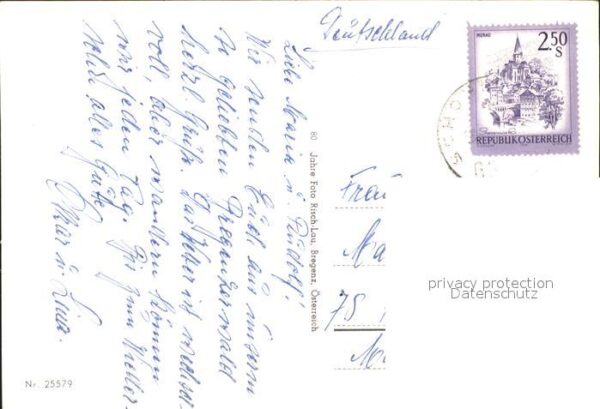 Deutschland
MURAU
2.50
S
REPUBLIK ÖSTERREICH
SCHO
Liebe Maria u. Rudolf!
Wir senden Euch aus unserm
so geliebten Bregenzerwald
herzl. Grüße. Das Wetter ist wechsel-
voll, aber wandern können
wir jeden Tag. Bis zum Wieder-
alles Gute
u.
80 Jahre Foto Risch-Lau, Bregenz, Österreich
Frau
Ma
75
privacy protection
Datenschutz
Nr. 25579